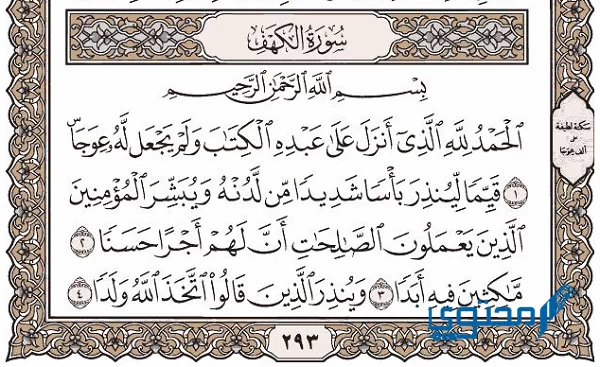 سُورَةُ الكَهْفِ
بِسْمِ ٱللَّهِ ٱلرَّحْمَٰنِ ٱلرَّحِيمِ
ٱلْحَمْدُ لِلَّهِ ٱلَّذِىٓ أَنزَلَ عَلَىٰ عَبْدِهِ ٱلْكِتَٰبَ وَلَمْ يَجْعَل لَّهُۥ عِوَجَاۜ
١ قَيِّمًا لِّيُنذِرَ بَأْسًا شَدِيدًا مِّن لَّدُنْهُ وَيُبَشِّرَ ٱلْمُؤْمِنِينَ
ٱلَّذِينَ يَعْمَلُونَ ٱلصَّٰلِحَٰتِ أَنَّ لَهُمْ أَجْرًا حَسَنًا ٢
مَّٰكِثِينَ فِيهِ أَبَدًا ٣ وَيُنذِرَ ٱلَّذِينَ قَالُوا۟ ٱتَّخَذَ ٱللَّهُ وَلَدًا ٤
سكتة لطيفة
على
ألف عوجا
محتوى
٢٩٣